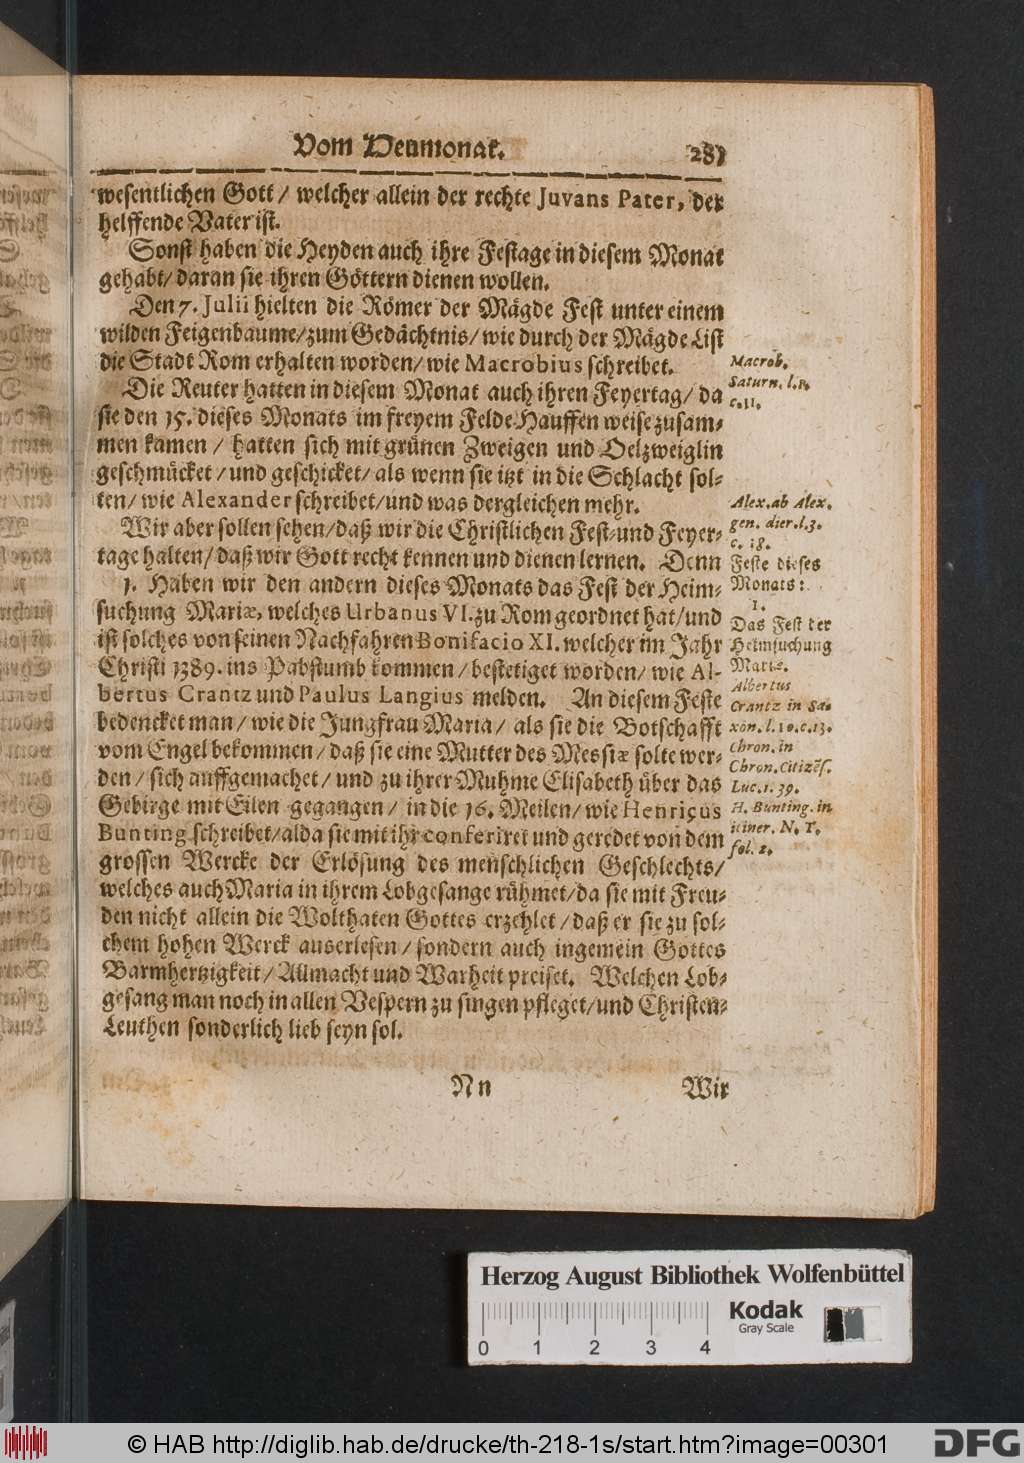 Vom Heumonat. 281
wesentlichen Gott / welcher allein der rechte Juvans Pater, der
helffende Vater ist.
Sonst haben die Heyden auch ihre Festage in diesem Monat
gehabt / daran sie ihren Göttern dienen wollen.
Den 7. Julii hielten die Römer der Mägde Fest unter einem
wilden Feigenbaume / zum Gedächtnis / wie durch der Mägde List
die Stadt Rom erhalten worden / wie Macrobius schreibet.
Die Reuter hatten in diesem Monat auch ihren Feyertag / da
sie den 15. dieses Monats im freyem Felde Hauffen weise zusam-
men kamen / hatten sich mit grünen Zweigen und Oelzweiglin
geschmücket / und geschicket / als wenn sie itzt in die Schlacht sol-
ten / wie Alexander schreibet / und was dergleichen mehr.
Wir aber sollen sehen / daß wir die Christlichen Fest- und Feyer-
tage halten / daß wir Gott recht kennen und dienen lernen. Denn
1. Haben wir den andern dieses Monats das Fest der Heim-
suchung Mariæ, welches Urbanus VI. zu Rom geordnet hat / und
ist solches von seinen Nachfahren Bonifacio XI. welcher im Jahr
Christi 1389. ins Pabstumb kommen / bestetiget worden / wie Al-
bertus Crantz und Paulus Langius melden. An diesem Feste
bedencket man / wie die Jungfrau Maria / als sie die Botschafft
vom Engel bekommen / daß sie eine Mutter des Messiæ solte wer-
den / sich auffgemachet / und zu ihrer Muhme Elisabeth über das
Gebirge mit Eilen gegangen / in die 16. Meilen / wie Henricus
Bunting schreibet / alda sie mit ihr conferiret und geredet von dem
grossen Wercke der Erlösung des menschlichen Geschlechts /
welches auch Maria in ihrem Lobgesange rühmet / da sie mit Freu-
den nicht allein die Wolthaten Gottes erzehlet / daß er sie zu sol-
chem hohen Werck auserlesen / sondern auch ingemein Gottes
Barmhertzigkeit / Allmacht und Warheit preiset. Welchen Lob-
gesang man noch in allen Vespern zu singen pfleget / und Christen-
Leuthen sonderlich lieb seyn sol.
Nn Wir
Macrob.
Saturn. l. 1.
c. 11.
Alex. ab Alex.
gen. dier. l. 3.
c. 18.
Feste dieses
Monats:
1.
Das Fest der
Heimsuchung
Mariæ.
Albertus
Crantz in Sa-
xon. l. 10. c. 13.
Chron. in
Chron. Citizēs.
Luc. 1. 39.
H. Bunting. in
itiner. N. T.
fol. 2.
Herzog August Bibliothek Wolfenbüttel
Kodak
Gray Scale
0 1 2 3 4
© HAB http://diglib.hab.de/drucke/th-218-1s/start.htm?image=00301
DFG